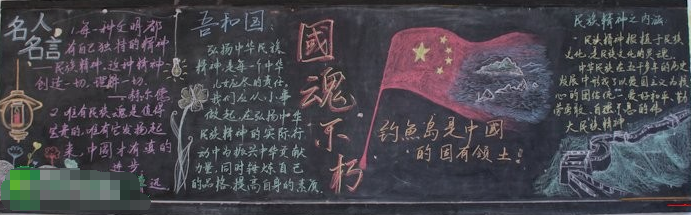 名人
名言
1.每一种文明都
有自己独特的精神
—民族精神,这种精神
创造一切,理解一切.
——赫尔德
2.唯有民族魂是值得
宝贵的,唯有它发扬起
来,中国才有真的
进步.
鲁迅
吾和国:
弘扬中华民族
精神是每个中华
儿女应尽的责任.
我们应从小事
做起,在弘扬中华
民族精神的实际行
动中为振兴中华贡献
力量,同时锤炼自己
的品格,提高自身的素质.
國魂不朽
钓鱼岛是中國
的固有领土
民族精神之内涵:
民族精神根植于民族
文化,是民族文化的灵魂.
中华民族在五千多年的历史
发展中形成了以爱国主义为核
心的团结统一、爱好和平、勤
劳勇敢、自强不息的伟
大民族精神.